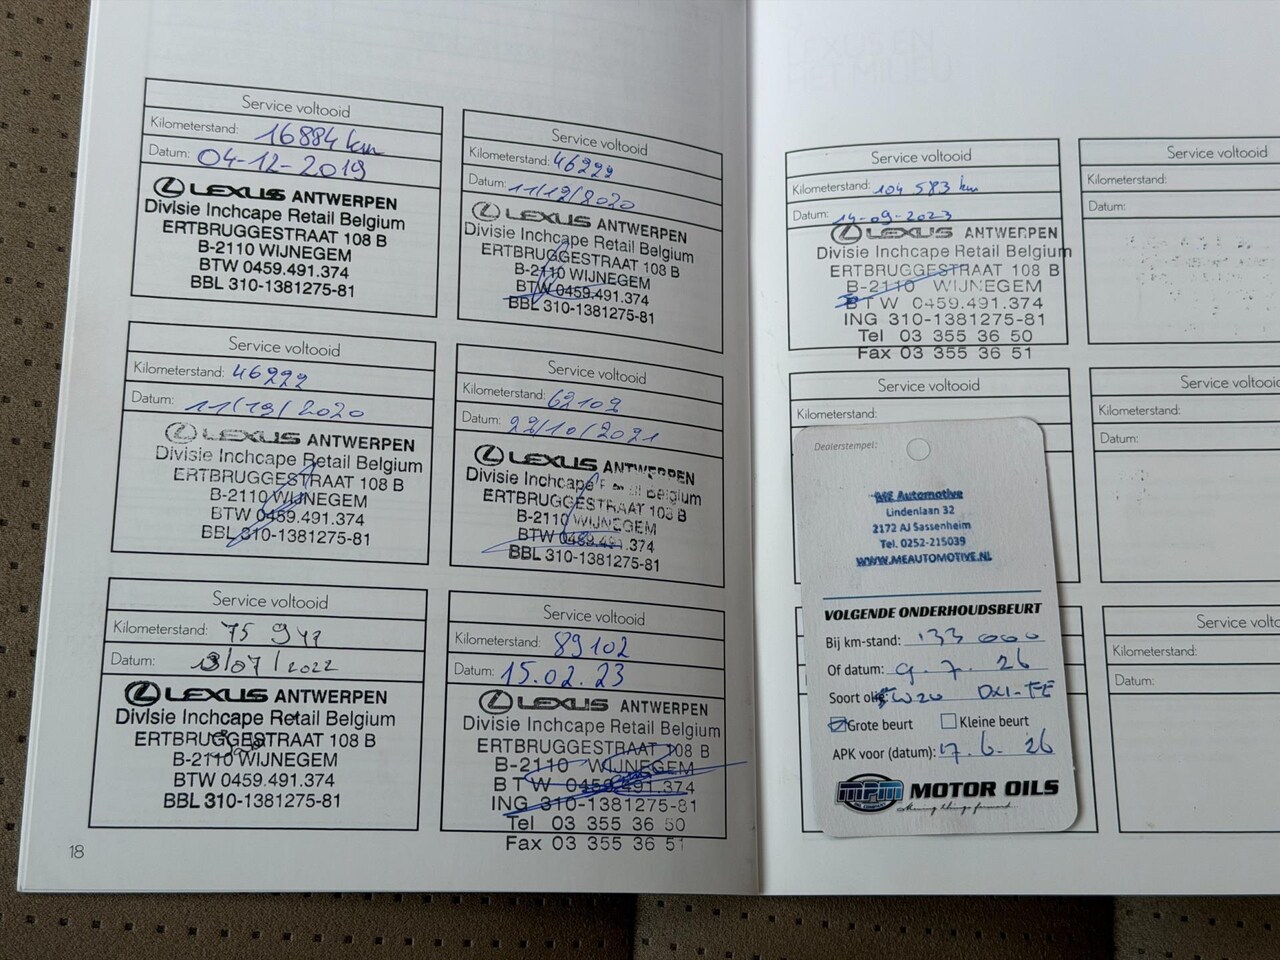 Service voltooid
Kilometerstand: 16884 km
Datum: 04-12-2019
LEXUS ANTWERPEN
Divisie Inchcape Retail Belgium
ERTBRUGGESTRAAT 108 B
B-2110 WIJNEGEM
BTW 0459.491.374
BBL 310-1381275-81
Service voltooid
Kilometerstand: 46222
Datum: 11/12/2020
LEXUS ANTWERPEN
Divisie Inchcape Retail Belgium
ERTBRUGGESTRAAT 108 B
B-2110 WIJNEGEM
BTW 0459.491.374
BBL 310-1381275-81
Service voltooid
Kilometerstand: 46222
Datum: 11/12/2020
LEXUS ANTWERPEN
Divisie Inchcape Retail Belgium
ERTBRUGGESTRAAT 108 B
B-2110 WIJNEGEM
BTW 0459.491.374
BBL 310-1381275-81
Service voltooid
Kilometerstand: 62102
Datum: 22/10/2021
LEXUS ANTWERPEN
Divisie Inchcape Retail Belgium
ERTBRUGGESTRAAT 108 B
B-2110 WIJNEGEM
BTW 0459.491.374
BBL 310-1381275-81
Service voltooid
Kilometerstand: 75 941
Datum: 13/07/2022
LEXUS ANTWERPEN
Divisie Inchcape Retail Belgium
ERTBRUGGESTRAAT 108 B
B-2110 WIJNEGEM
BTW 0459.491.374
BBL 310-1381275-81
Service voltooid
Kilometerstand: 89102
Datum: 15.02.23
LEXUS ANTWERPEN
Divisie Inchcape Retail Belgium
ERTBRUGGESTRAAT 108 B
B-2110 WIJNEGEM
BTW 0459.491.374
ING 310-1381275-81
Tel 03 355 36 50
Fax 03 355 36 51
18
Service voltooid
Kilometerstand: 104 583 km
Datum: 14-09-2023
LEXUS ANTWERPEN
Divisie Inchcape Retail Belgium
ERTBRUGGESTRAAT 108 B
B-2110 WIJNEGEM
BTW 0459.491.374
ING 310-1381275-81
Tel 03 355 36 50
Fax 03 355 36 51
Service voltooid
Kilometerstand:
Datum:
Service voltooid
Kilometerstand:
Service voltooid
Kilometerstand:
Datum:
Service volto
Kilometerstand:
Datum:
Dealerstempel:
ME Automotive
Lindenlaan 32
2172 AJ Sassenheim
Tel. 0252-215039
WWW.MEAUTOMOTIVE.NL
VOLGENDE ONDERHOUDSBEURT
Bij km-stand: 133 000
Of datum: 9.7.26
Soort olie: 5W20 DXI-FE
Grote beurt Kleine beurt
APK voor (datum): 17.6.26
MPM MOTOR OILS
Moving things forward